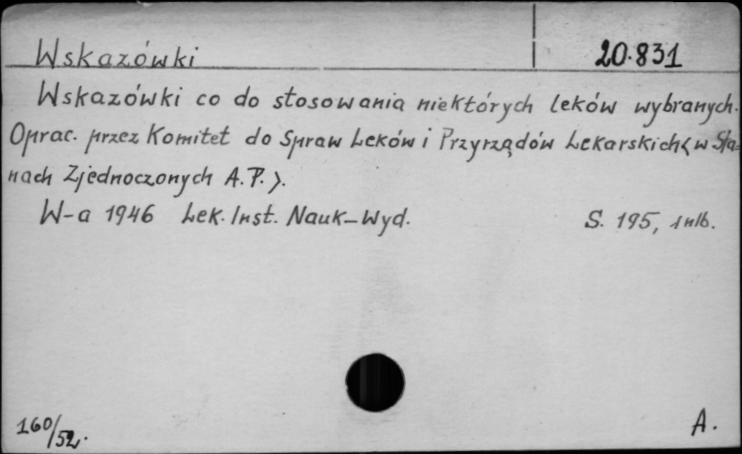 Wskazówki 20.831
Wskazówki co do stosowania niektórych leków wybranych.
Oprac. przez Komitet do Spraw Leków i Przyrządów Lekarskich <w Sta=
nach Zjednoczonych A.P.>.
W-a 1946 Lek. Inst. Nauk-Wyd. S. 195, 1 nlb.
160/52. A.